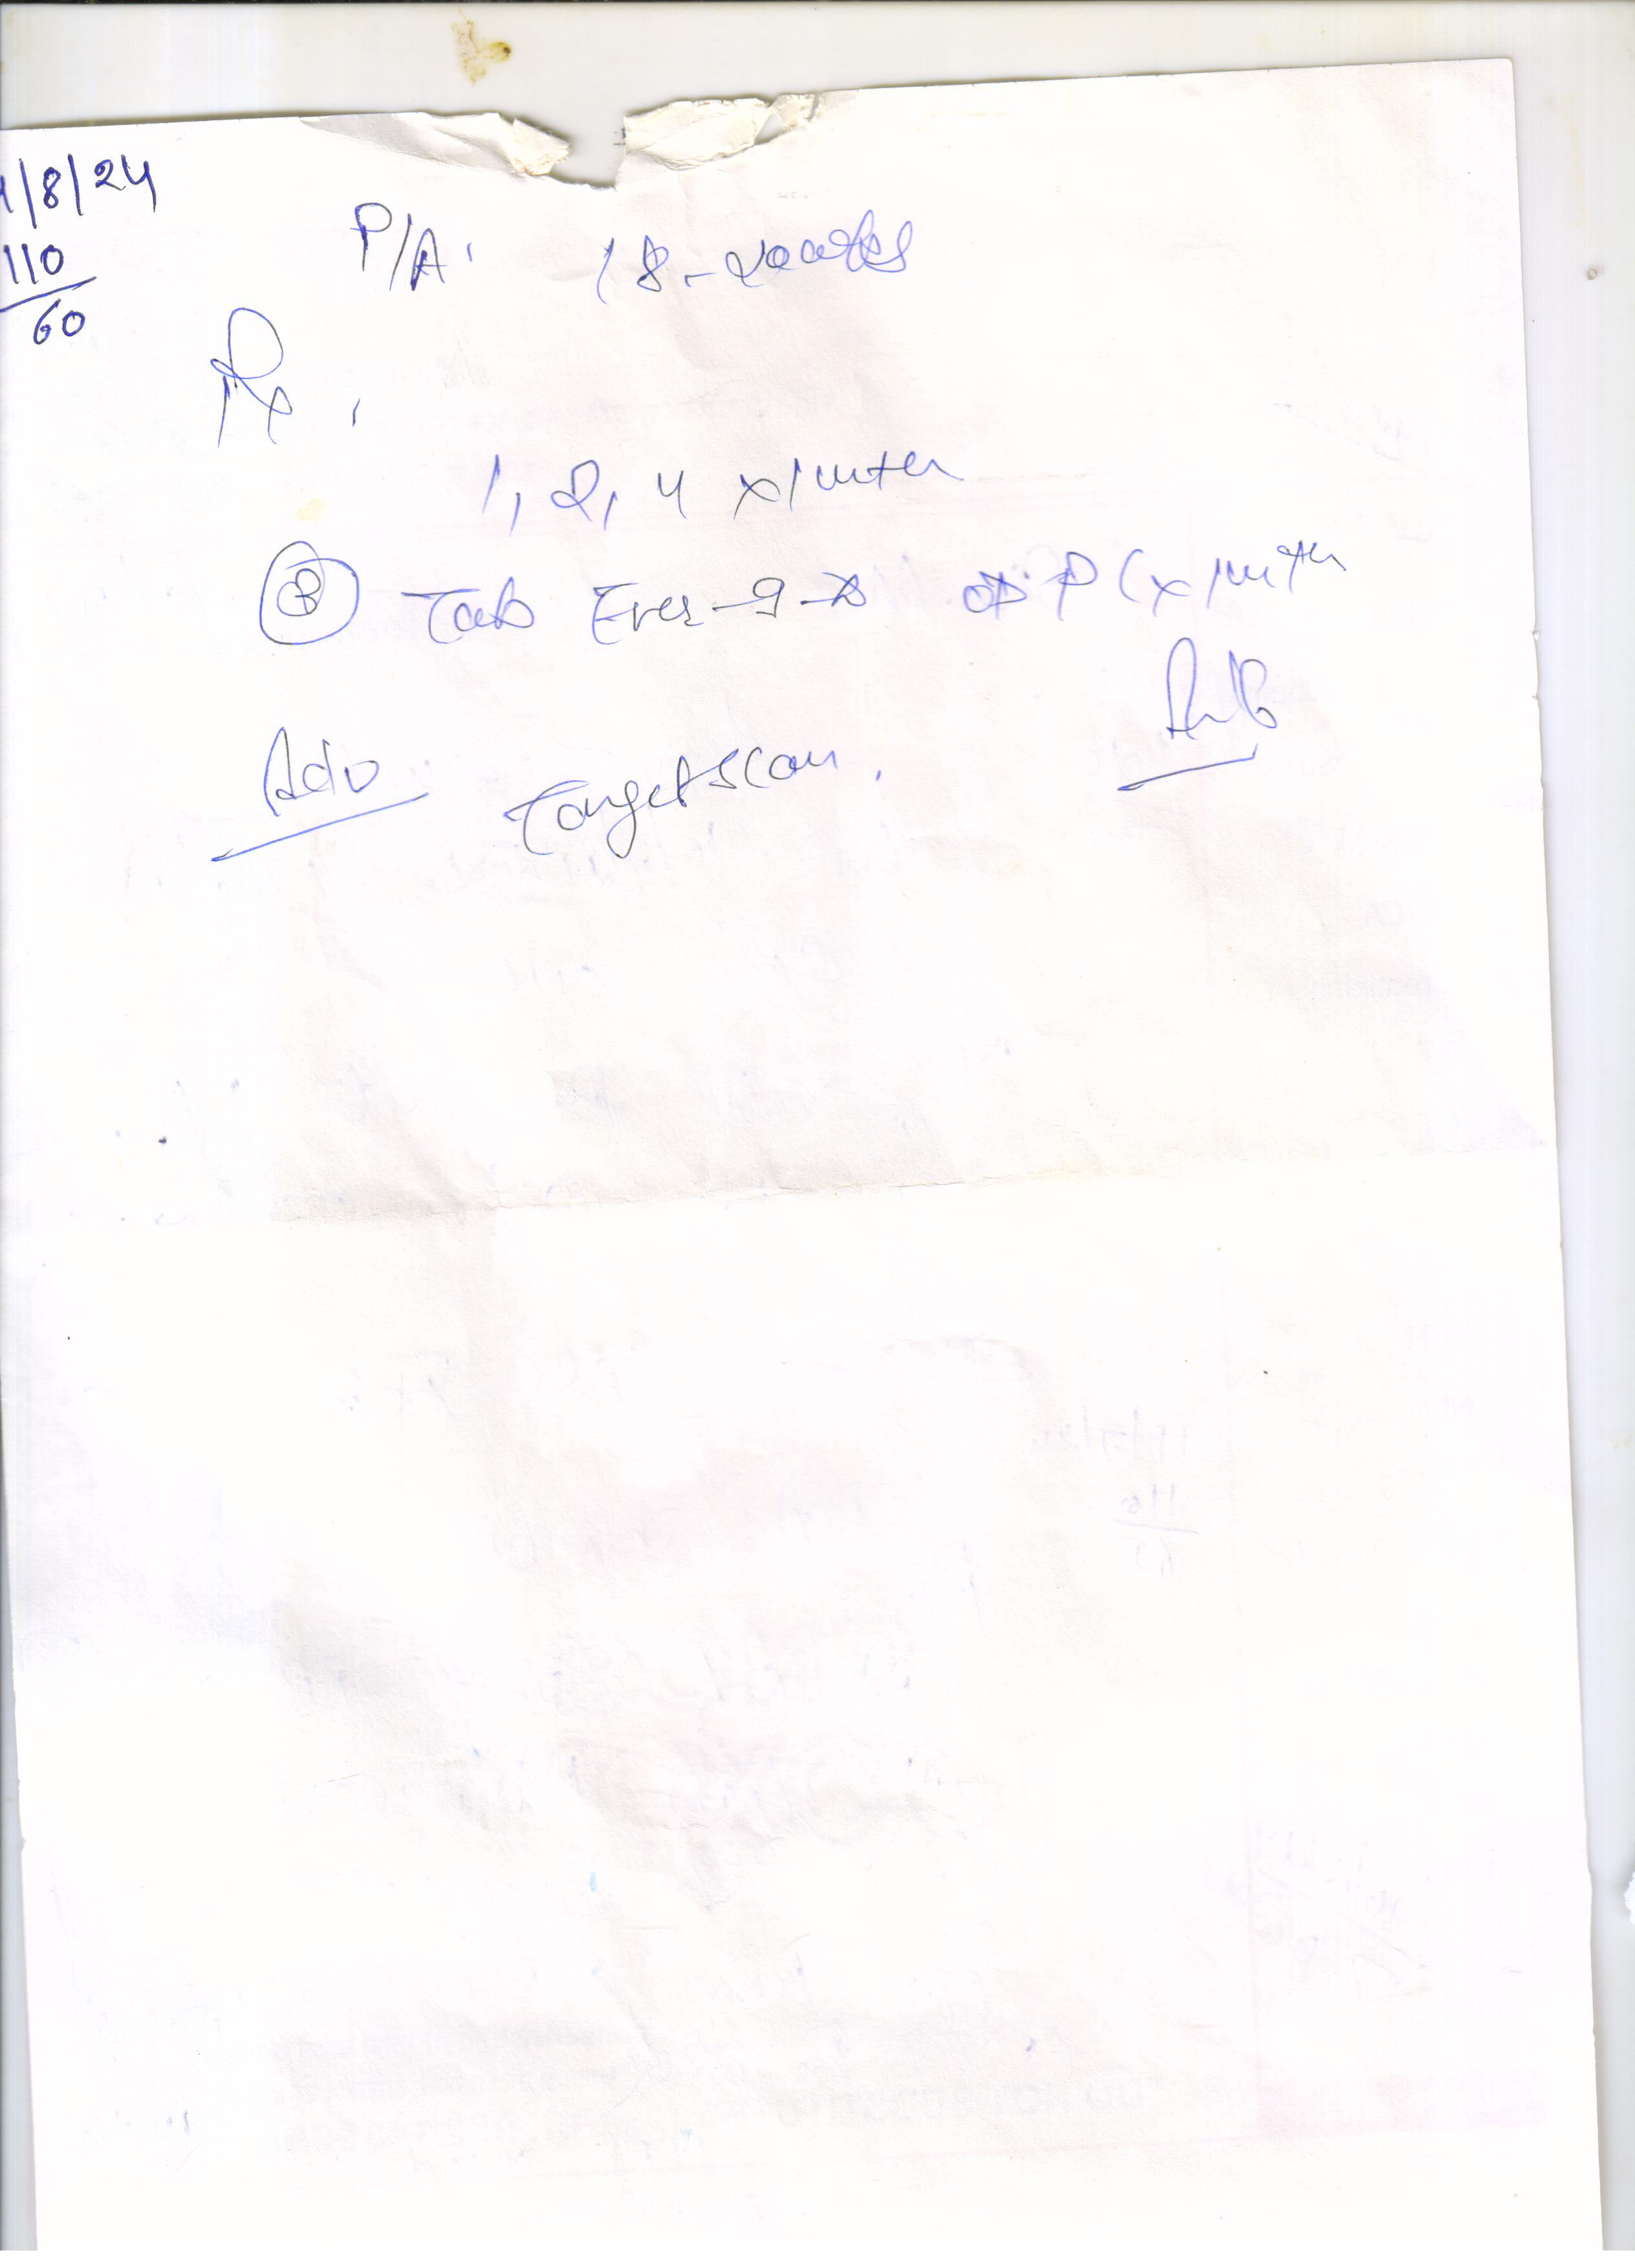 /8/24
110
60
P/A. 18-weeks
Rx.
1, 2, 4 x 1 mten
③ Tab Ever-9-D OD P C x 1 mten
Adv Target scan.